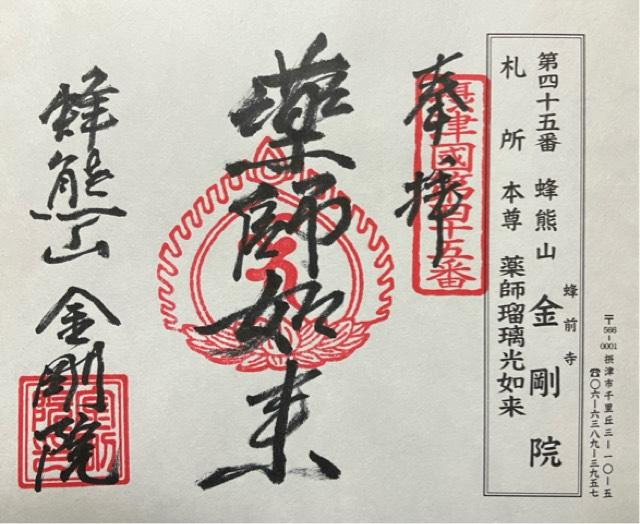 〒566-0001 摂津市千里丘三-一〇-五
☎〇六-六三八九-三九五七
第四十五番 蜂熊山 蜂前寺 金剛院
札所本尊 薬師瑠璃光如来
奉拝
摂津國第四十五番
薬師如来
蜂熊山 金剛院